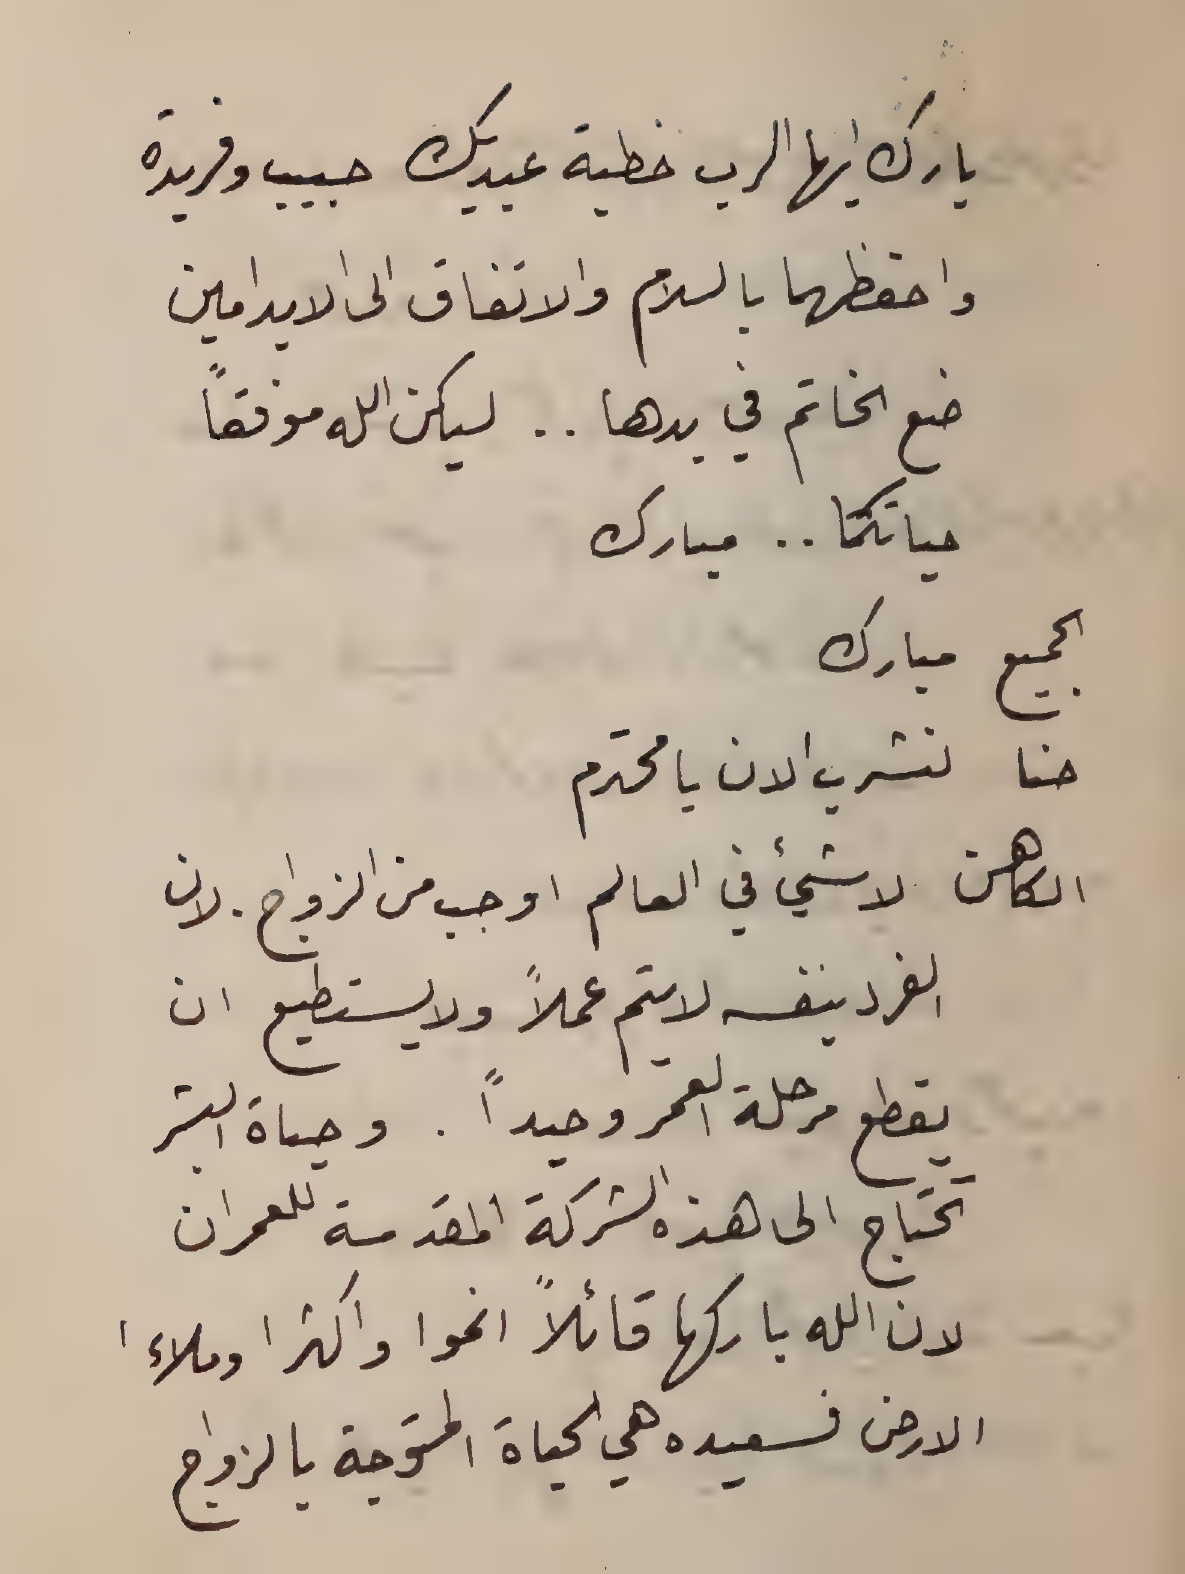 بارك ايها الرب خطبة عبديك حبيب وفريدة
واحفظهما بالسلام والاتفاق الى الابد امين
ضع الخاتم في يدها .. ليكن الله موفقاً
حياتكما .. مبارك
الجميع مبارك
حنا لنشرب الان يا محترم
الكاهن لا شيئ في العالم اوجب من الزواج . لان
الفرد بنفسه لا يتم عملاً ولا يستطيع ان
يقطع مرحلة العمر وحيداً . وحياة البشر
تحتاج الى هذه الشركة المقدسة للعمران
لان الله باركها قائلاً انموا واكثرا وملاء ا
الارض فسعيده هي الحياة المتوجة بالزواج